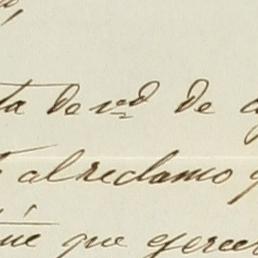 ta de vd de
al reclamo q
que ejercer